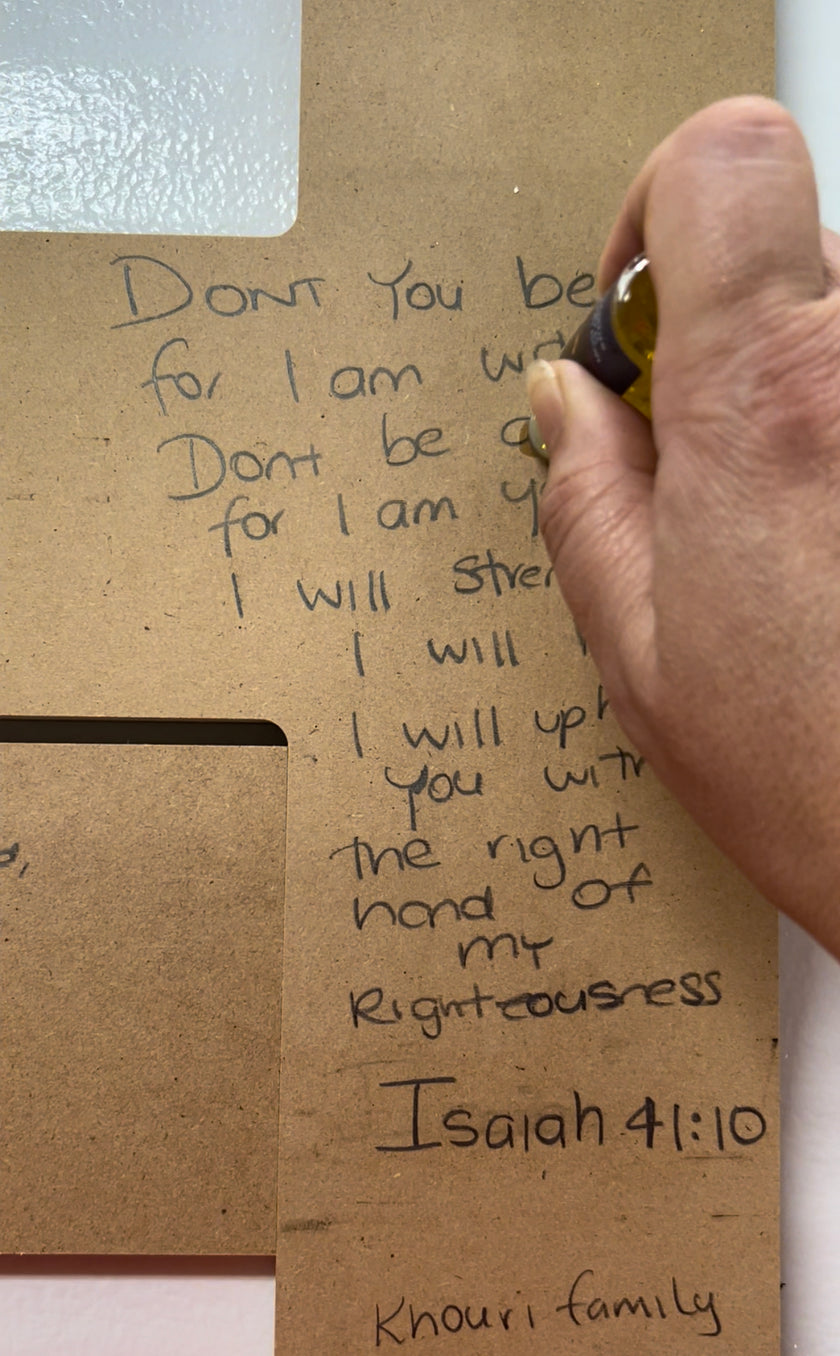 Dont you be
for I am
Dont be
for I am
I will
I will
I will
you with
the right
hand of
my
Righteousness
Isaiah 41:10
Khouri family